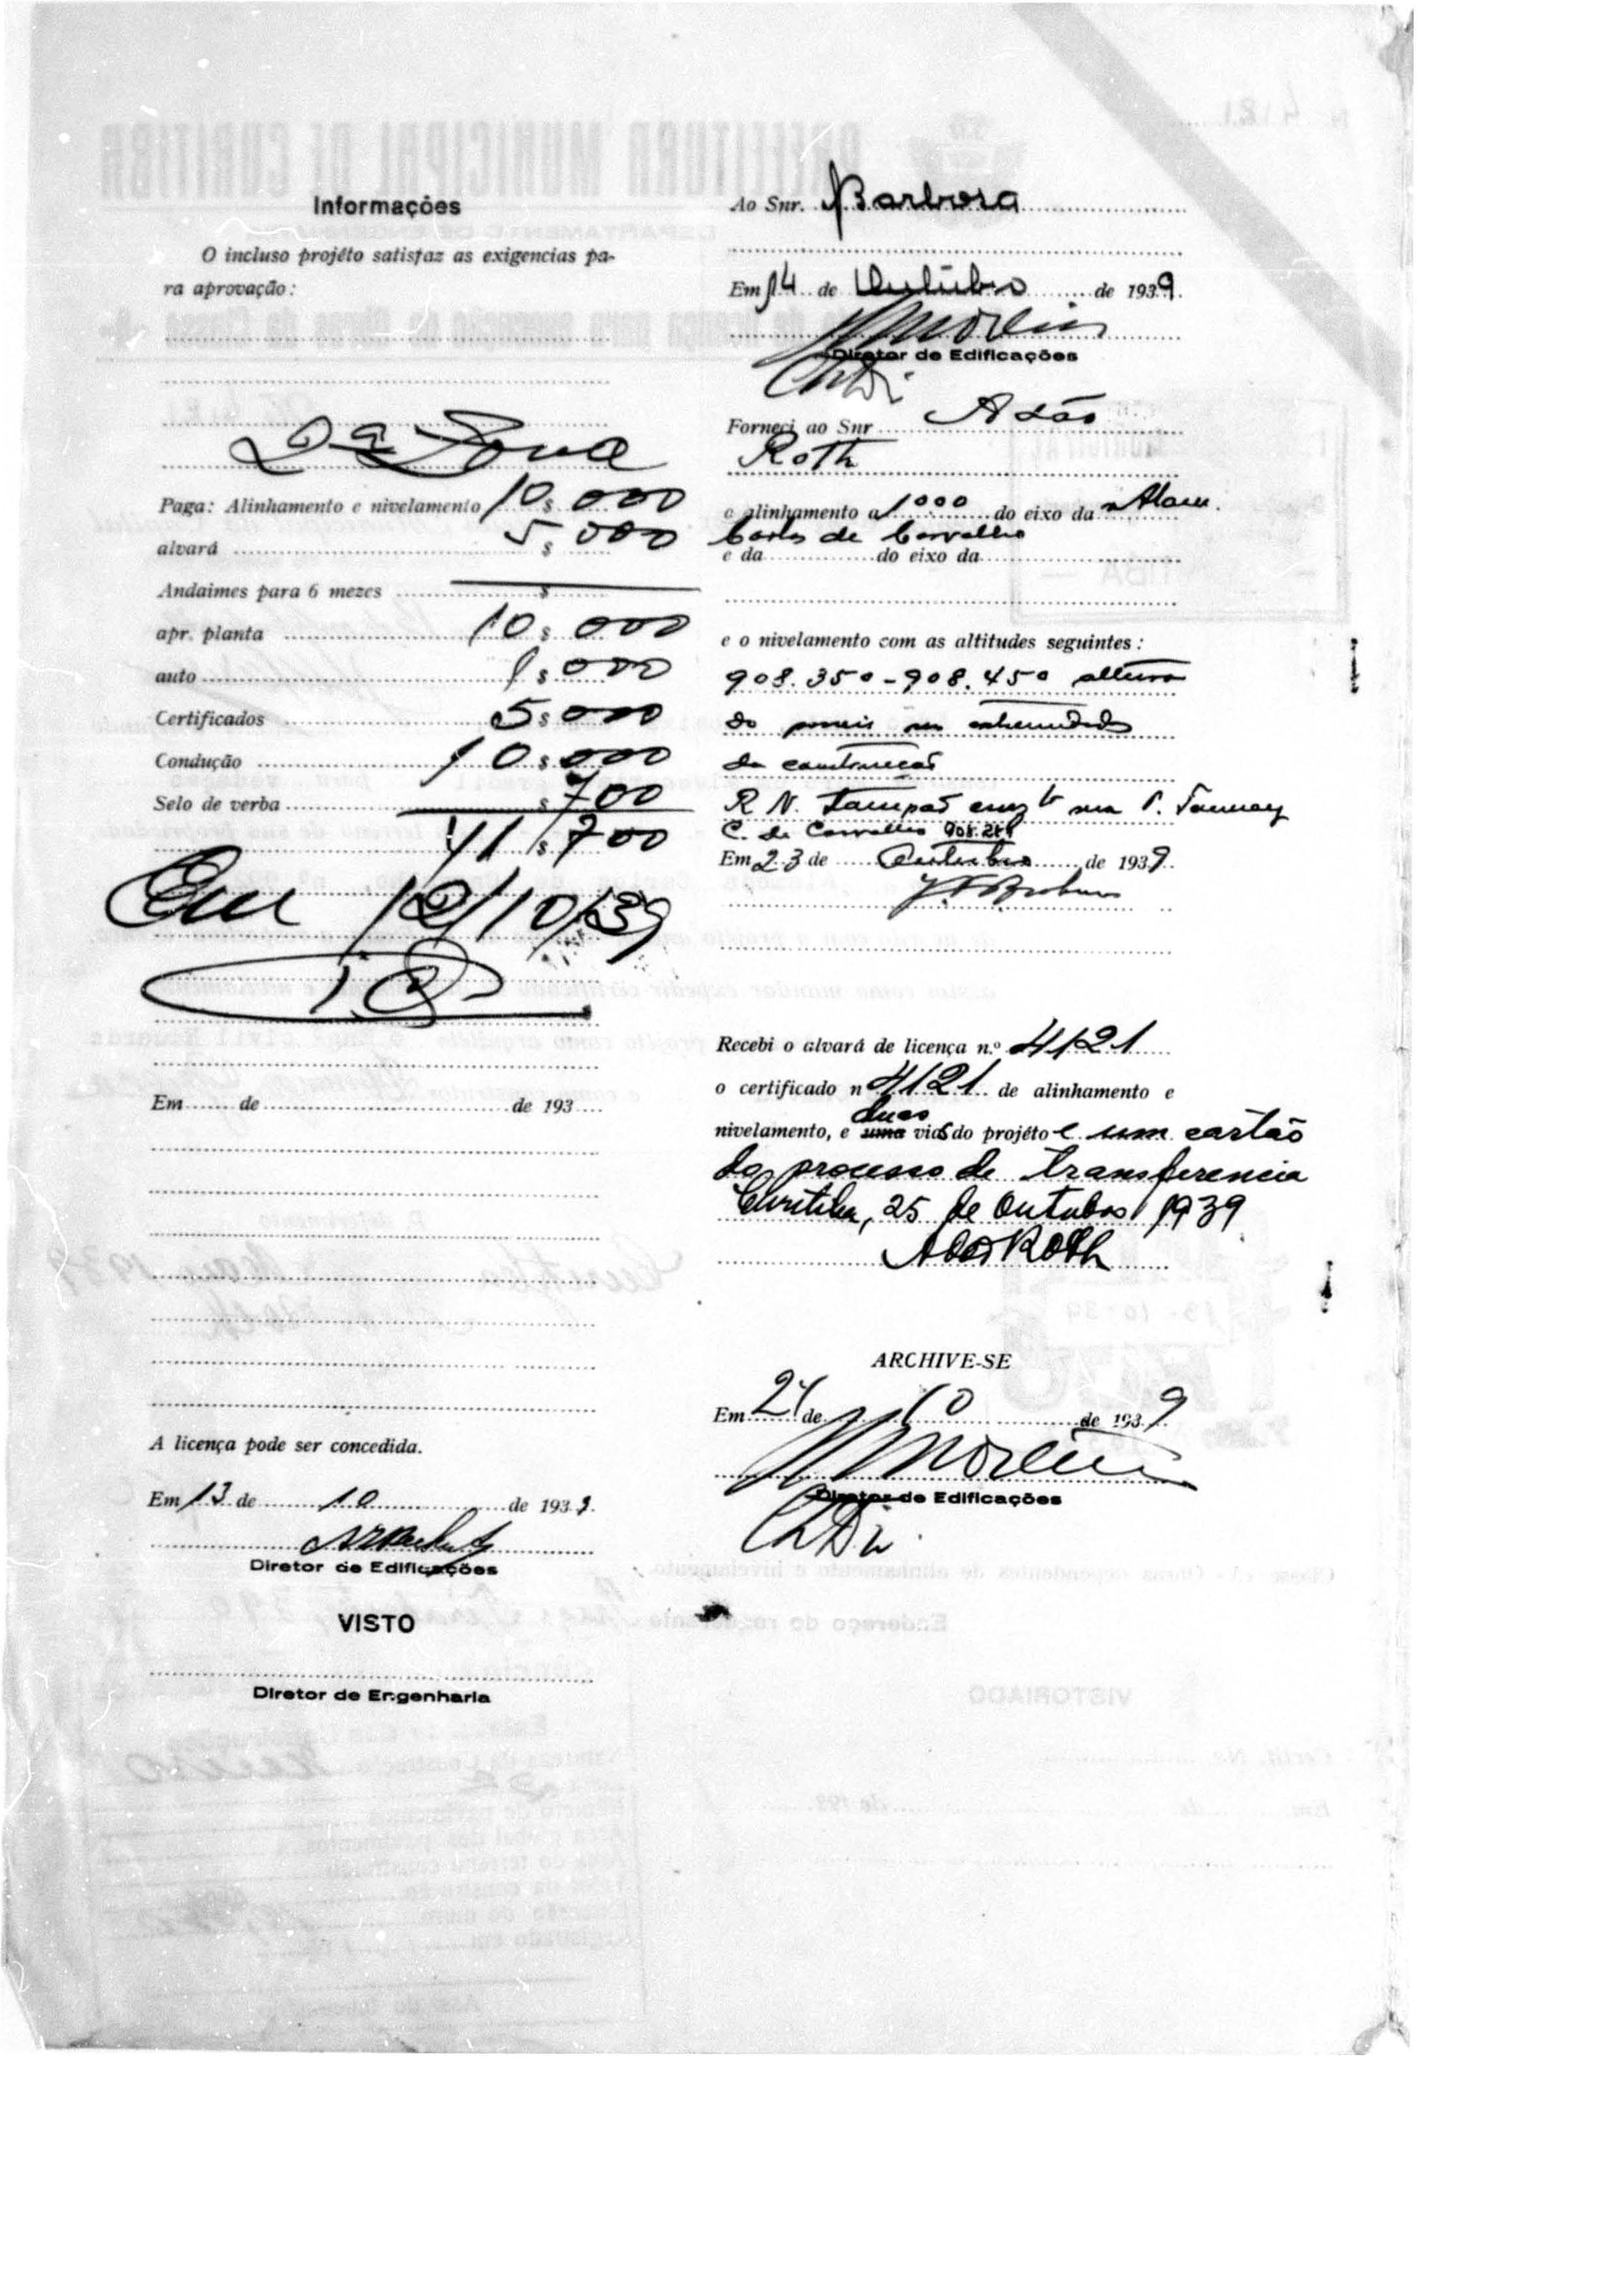 Informações
O incluso projéto satisfaz as exigencias pa-
ra aprovação:
2ª Zona
Paga: Alinhamento e nivelamento 10$000
alvará 5$000
Andaimes para 6 mezes $
apr. planta 10$000
auto 1$000
Certificados 5$000
Condução 10$000
Selo de verba $700
41$700
Em 12/10/39
Em de de 193
A licença pode ser concedida.
Em 13 de 10 de 1939.
Diretor de Edificações
VISTO
Diretor de Engenharia
Ao Snr. Barbosa
Em 14 de Outubro de 1939.
Diretor de Edificações
Forneci ao Snr Adão
Roth
o alinhamento a 1000 do eixo da Alam.
Carlos de Carvalho
e da do eixo da
e o nivelamento com as altitudes seguintes:
908.350-908.450 altura
do nas extremidades
da construcção
R N. Tampão rua
C. de Carvalho
Em 23 de Outubro de 1939.
Recebi o alvará de licença n.º 4121
o certificado n 4121 de alinhamento e
duas
nivelamento, e uma vias do projéto e um cartão
do processo de transferencia
Curitiba, 25 de Outubro 1939
Adão Roth
ARCHIVE-SE
Em de 10 de 1939.
Diretor de Edificações